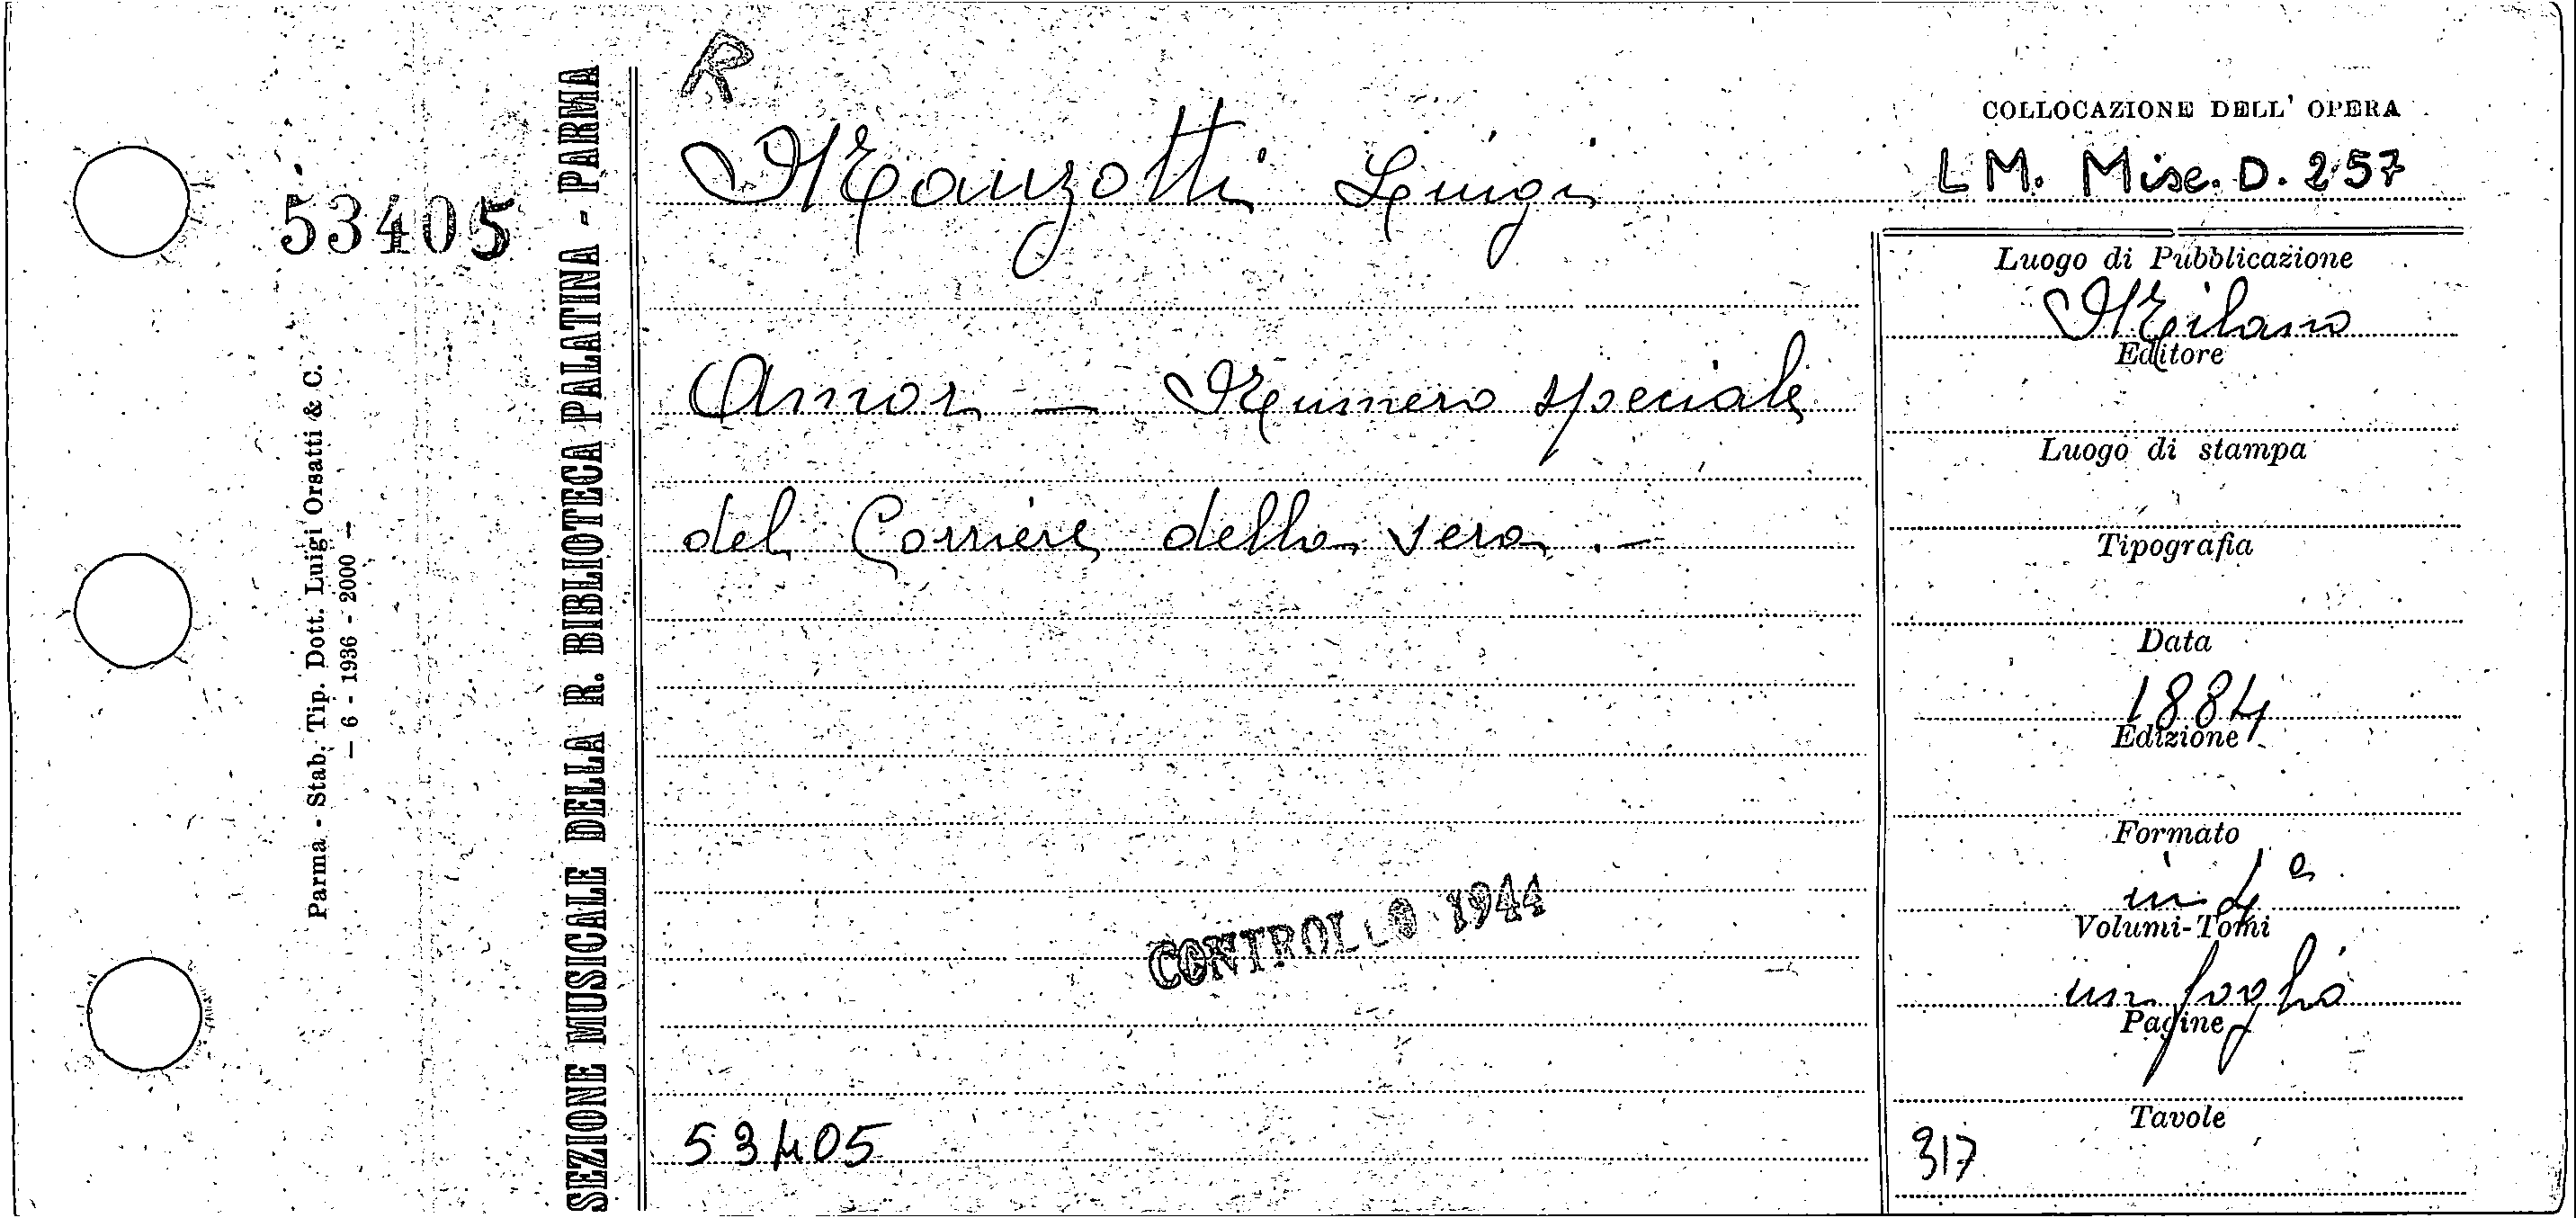 R
Manzotti Luigi
Amor — Numero speciale
del Corriere della sera . —
CONTROLLO 1944
53405
COLLOCAZIONE DELL' OPERA
L M. Misc. D. 257
Luogo di Pubblicazione
Milano
Editore
Luogo di stampa
Tipografia
Data
1884
Edizione
Formato
in 4º
Volumi-Tomi
un foglio
Pagine
Tavole
317
53405
Parma - Stab. Tip. Dott. Luigi Orsatti & C.
— 6 - 1936 - 2000 —
SEZIONE MUSICALE DELLA R. BIBLIOTECA PALATINA - PARMA